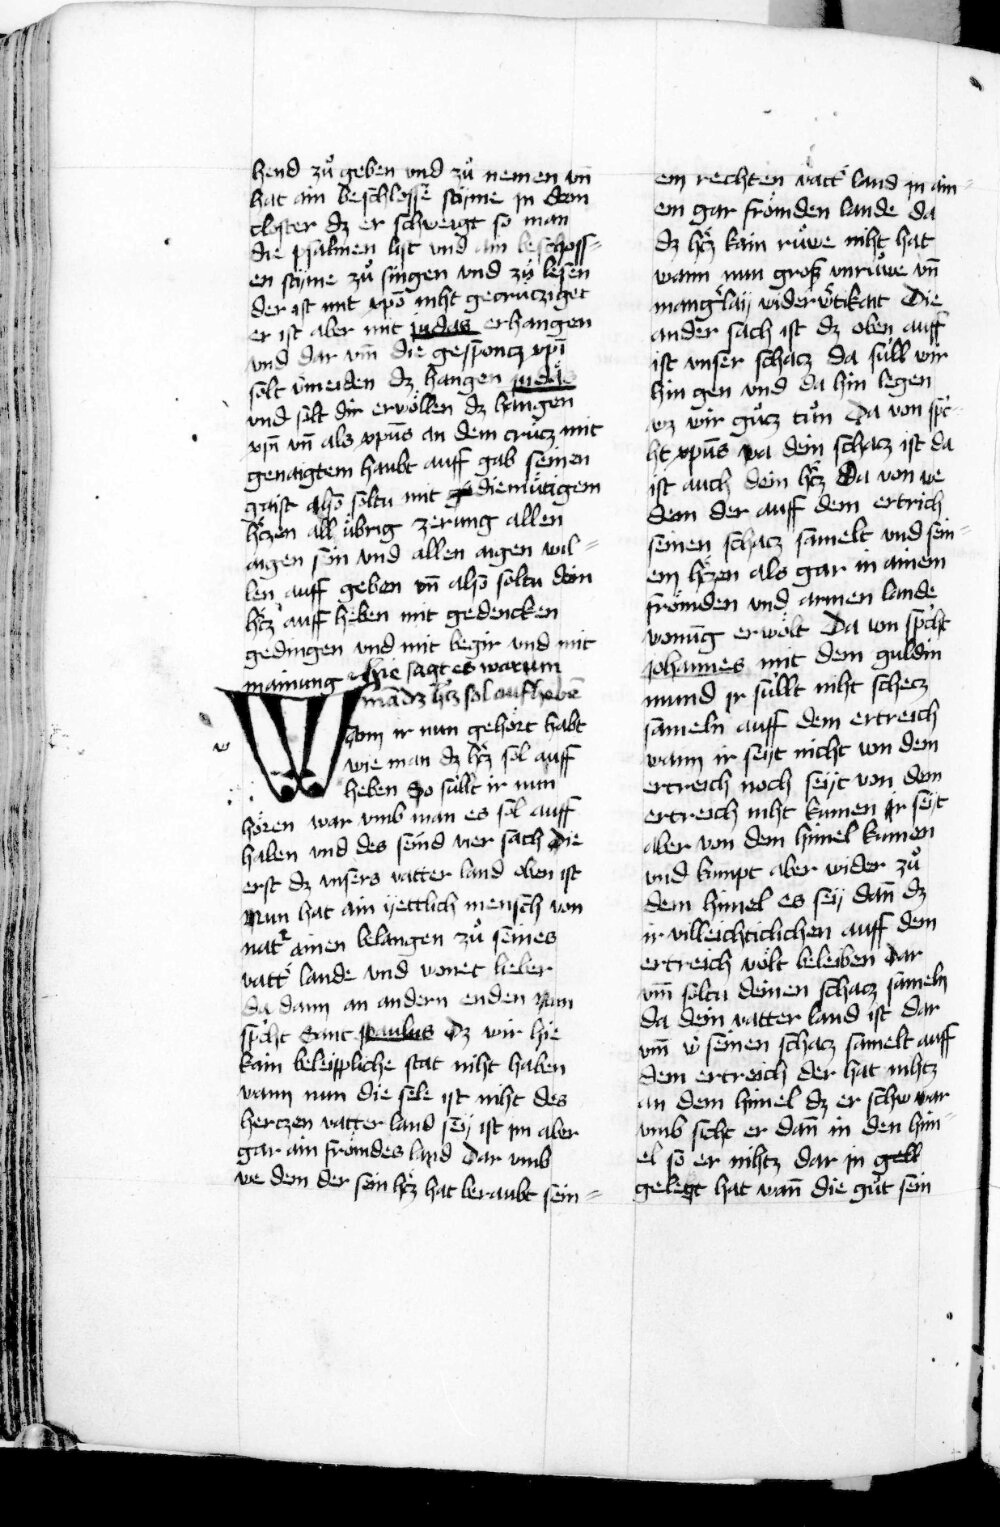 hend zů geben vnd zů nemen vn̄
hat ain beschlosse̅ stӱme in dem
closter dz er schweigt so man
die psalmen list vnd ain beschloss=
en stӱme zů singen vnd zů lesen
der ist mit xp̄o niht gecrúcziget
er ist aber mit judas erhangen
vnd dar vm̄ die gesponcz xp̄i
solt v̓meiden dz hangen jndas
vnd solt dir erwöllen dz hangen
xp̄i vn̄ als xp̄us an dem crúcz mit
genaigtem haubt auff gab seinen
gaist also soltu mit diemůtigem
h̓czen all úbrig zerung allen
aigen sin vnd allen aigen wil=
len auff geben vn̄ also soltu dein
h̓cz auff heben mit gedencken
gedingen vnd mit begir vnd mit
mainung hie sagt es warum
ma̅ dz h̓cz sol aufheben
Wann ir nun gehört habt
w
wie man dz h̓cz sol auff
heben So súllt ir nun
hören war vmb man es sol auff
haben vnd des seind vier sach Die
erst dz vnsers vatter land oben ist
Nun hat ain ӱettlich mensch von
natr̓ ainen belangen zů seines
vatt̓ lande vnd wonet lieber
da dann an andern enden Nun
sp̓cht Sant paulus Dz wir hie
kain beleipliche stat niht haben
wann nun die sele ist niht des
herczen vatter land seӱ ist im aber
gar ain frömdes land Dar vmb
we dem der sein h̓cz hat beraubt sein=
em rechten vatt̓ land in ain=
em gar frömden lande da
dz h̓cz kain růwe niht hat
wann nun groß vnrůwe vn̄
mang̓laӱ widerw̓tikait Die
ander sach ist dz oben auff
ist vnser schacz da súll wir
hin gen vnd da hin legen
wz wir gůcz tůn Da von sp̓c=
ht xp̄us wa dein schacz ist da
ist auch dein h̓cz Da von we
dem der auff dem ertrich
seinen schacz samelt vnd sein=
em h̓czen als gar in ainem
frömden vnd armen lande
wonu̅g erwölt Da von sp̓cht
johannes mit dem guldin
mund ir súllt niht schecz
sameln auff dem ertreich
wann ir seӱt nicht von dem
ertreich noch seӱt von dem
ertreich niht kumen Ir seӱt
aber von dem himel kumen
vnd kumpt aber wider zů
dem himel es seӱ dan̄ dz
ir villeichticlichen auff dem
ertreich wölt beleiben Dar
vm̄ soltu deinen schacz sameln
da dein vatter land ist Dar
vm̄ w̓ seinen schacz samelt auff
dem ertreich der hat nihtz
an dem himel dz er schw war
vmb sicht er dan̄ in den him=
el so er nihtz dar in gell
gelegt hat wan̄ die gůt sein